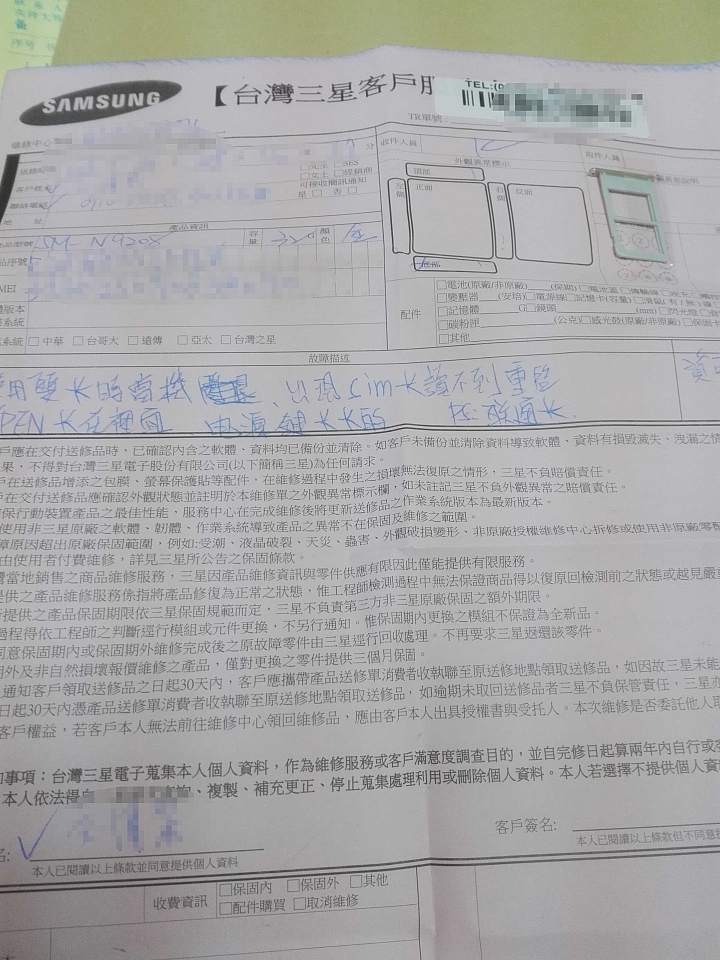 SAMSUNG
【台灣三星客戶服
TEL:(0
TR單號
收件人員
取件人員
外觀異常標示
頂部
左側
正面
右側
反面
底部
產品資訊
SM-N9208
容量
32G
顏色
金
IMEI
□中華 □台哥大 □遠傳 □亞太 □台灣之星
配件
□電池(原廠/非原廠)
(保期)
□變壓器
(安培)□電源線□記憶卡(容量)
□記憶體
G□鏡頭
(mm)
□碳粉匣
(公克)□感光鼓(原廠/非原廠)
□其他
故障描述
用雙卡時當機
出現sim卡讀不到重啟
PEN卡在裡面
电源鍵卡卡的
戶應在交付送修品時，已確認內含之軟體、資料均已備份並清除。如客戶未備份並清除資料導致軟體、資料有損毀滅失、洩漏之情
果，不得對台灣三星電子股份有限公司(以下簡稱三星)為任何請求。
戶在送修品增添之包膜、螢幕保護貼等配件，在維修過程中發生之損壞無法復原之情形，三星不負賠償責任。
戶在交付送修品應確認外觀狀態並註明於本維修單之外觀異常標示欄，如未註記三星不負外觀異常之賠償責任。
保行動裝置產品之最佳性能，服務中心在完成維修後將更新送修品之作業系統版本為最新版本。
使用非三星原廠之軟體、韌體、作業系統導致產品之異常不在保固及維修之範圍。
障原因超出原廠保固範圍，例如:受潮、液晶破裂、天災、蟲害、外觀破損變形、非原廠授權維修中心拆修或使用非原廠零配
由使用者付費維修，詳見三星所公告之保固條款。
當地銷售之商品維修服務，三星因產品維修資訊與零件供應有限因此僅能提供有限服務。
提供之產品維修服務係指將產品修復為正常之狀態，惟工程師檢測過程中無法保證商品得以復原回檢測前之狀態或越見嚴重
提供之產品保固期限依三星保固規範而定，三星不負責第三方非三星原廠保固之額外期限。
過程得依工程師之判斷逕行模組或元件更換，不另行通知。惟保固期內更換之模組不保證為全新品。
同意保固期內或保固期外維修完成後之原故障零件由三星逕行回收處理。不再要求三星返還該零件。
期外及非自然損壞報價維修之產品，僅對更換之零件提供三個月保固。
通知客戶領取送修品之日起30天內，客戶應攜帶產品送修單消費者收執聯至原送修地點領取送修品，如因故三星未能
日起30天內憑產品送修單消費者收執聯至原送修地點領取送修品，如逾期未取回送修品者三星不負保管責任，三星亦
客戶權益，若客戶本人無法前往維修中心領回維修品，應由客戶本人出具授權書與受託人。本次維修是否委託他人取
事項：台灣三星電子蒐集本人個人資料，作為維修服務或客戶滿意度調查目的，並自完修日起算兩年內自行或客
本人依法得
、複製、補充更正、停止蒐集處理利用或刪除個人資料。本人若選擇不提供個人資
名:
本人已閱讀以上條款並同意提供個人資料
客戶簽名:
本人已閱讀以上條款但不同意
收費資訊
□保固內 □保固外 □其他
□配件購買 □取消維修